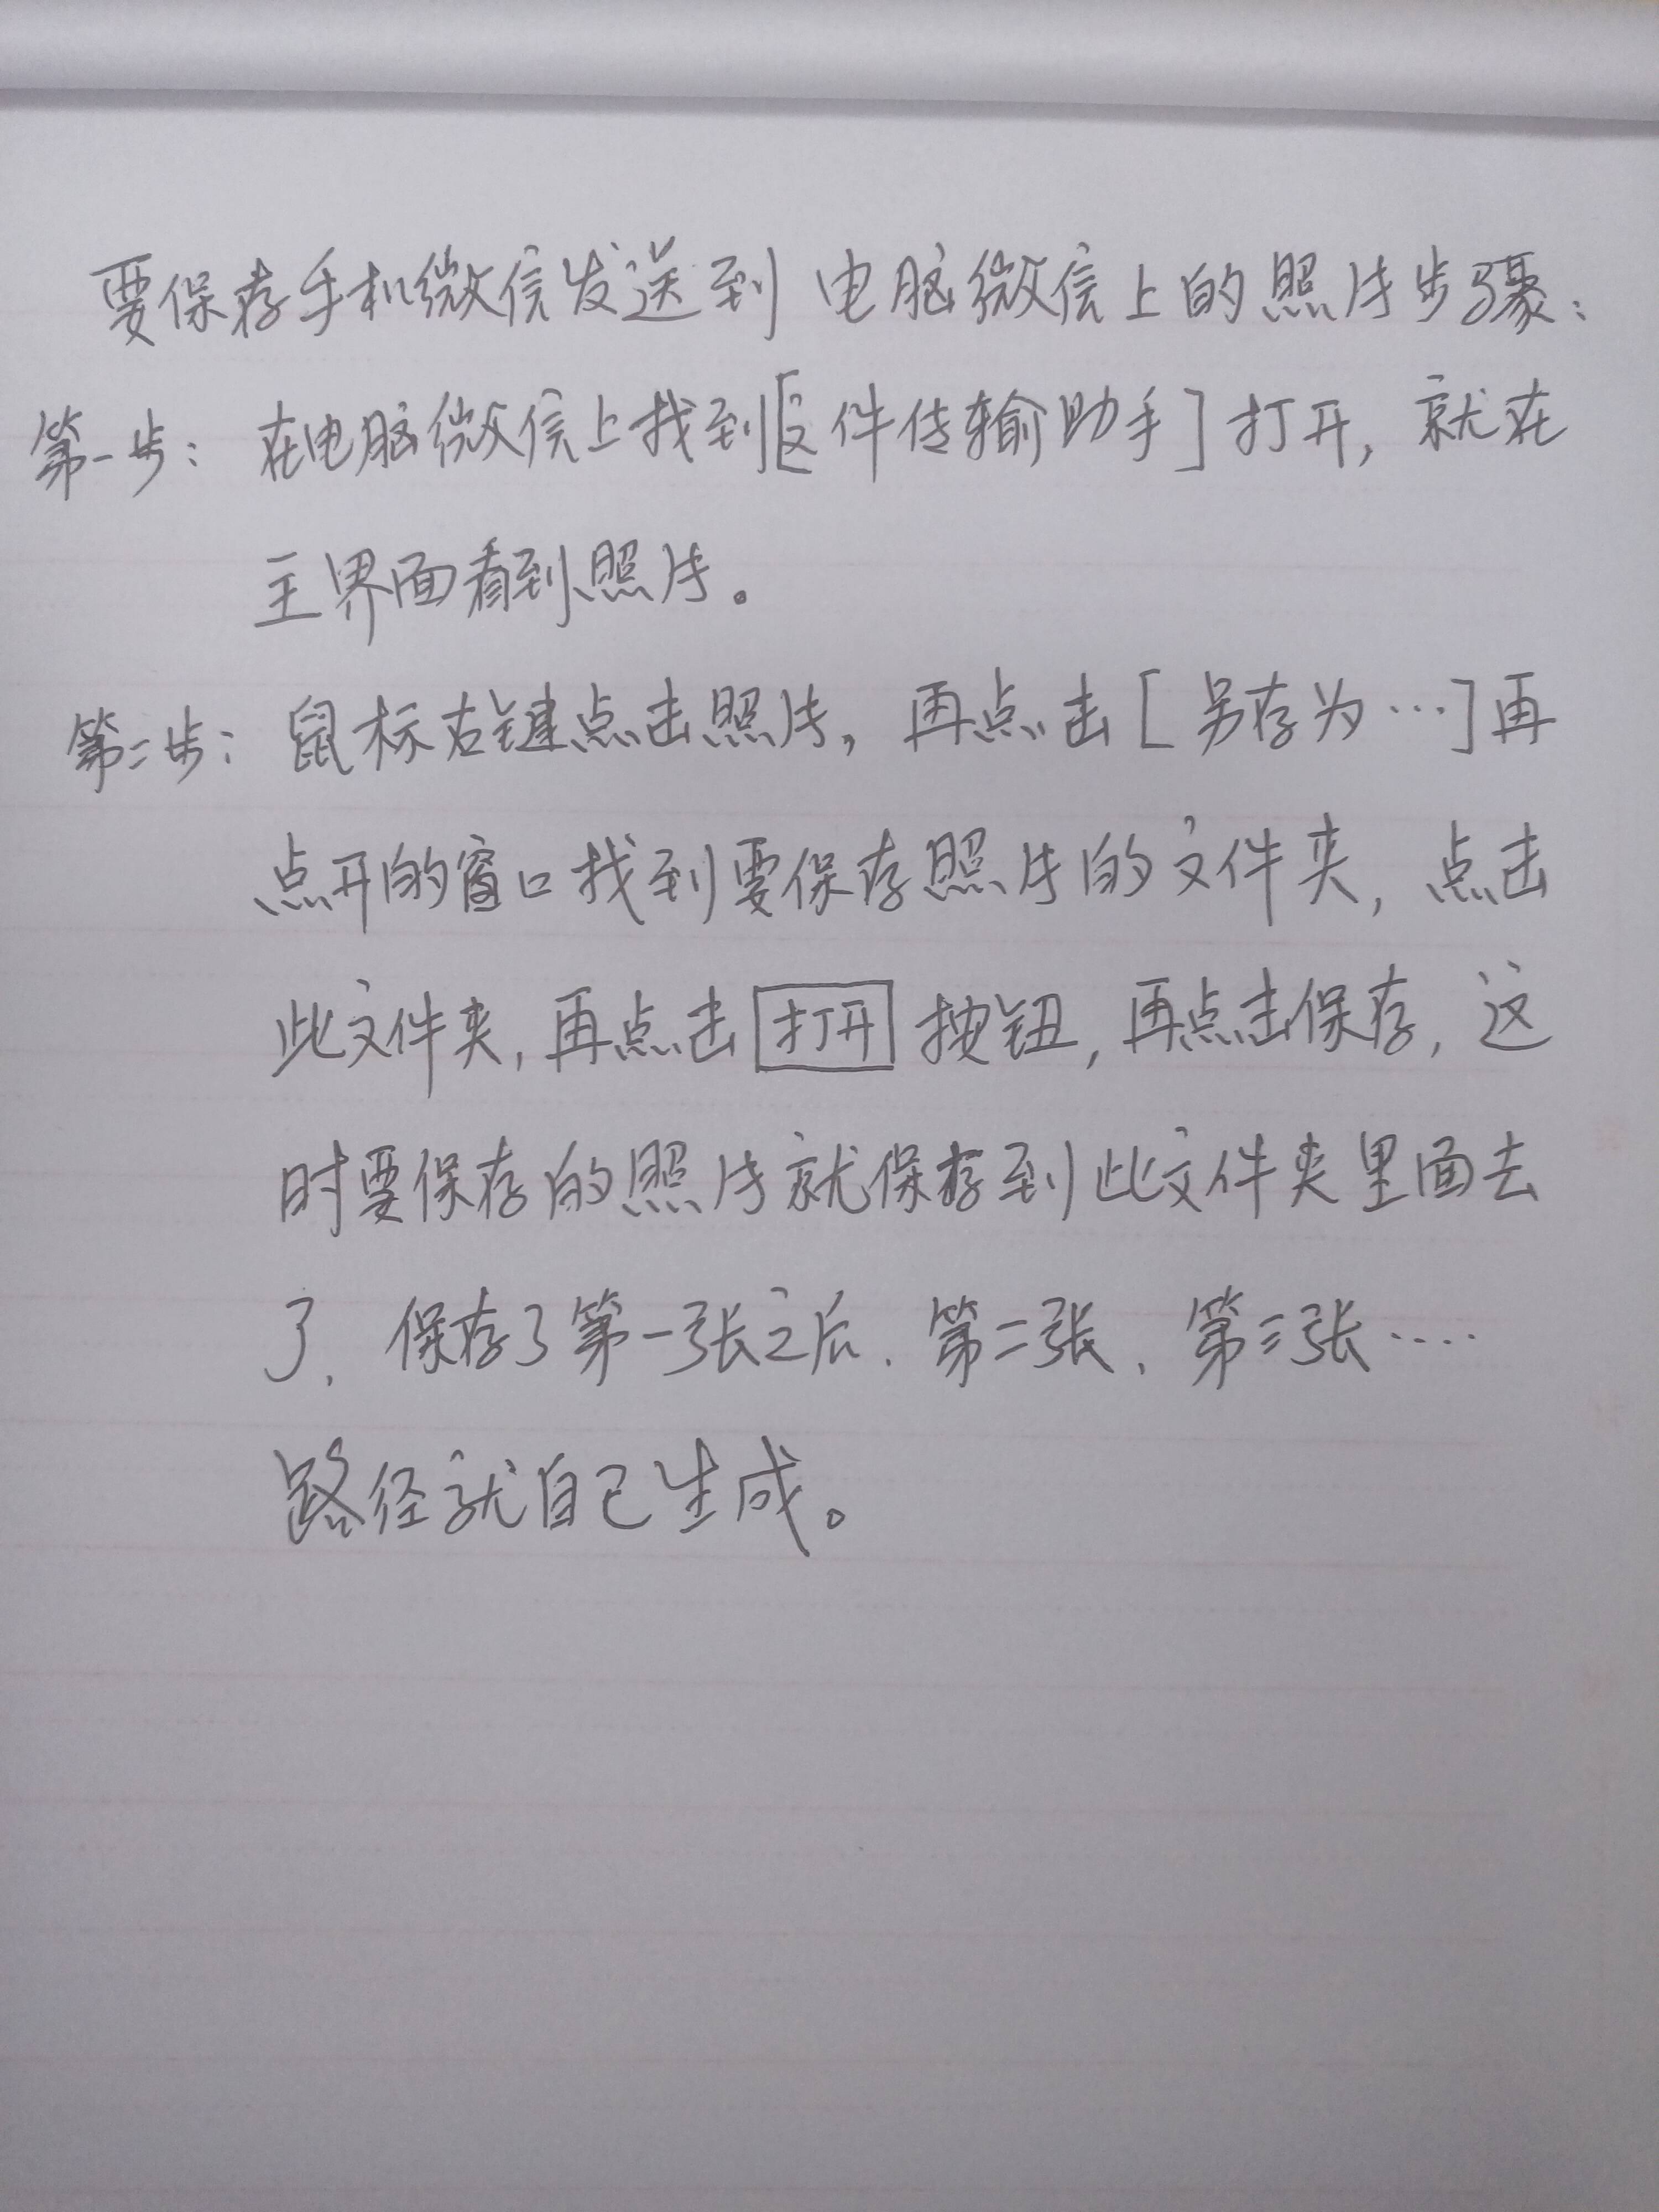 要保存手机微信发送到电脑微信上的照片步骤:
第一步:在电脑微信上找到[文件传输助手]打开,就在
主界面看到照片。
第二步:鼠标右键点击照片,再点击[另存为…]再
点开的窗口找到要保存照片的文件夹,点击
此文件夹,再点击打开按钮,再点击保存,这
时要保存的照片就保存到此文件夹里面去
了,保存了第一张之后、第二张、第三张····
路径就自己生成。